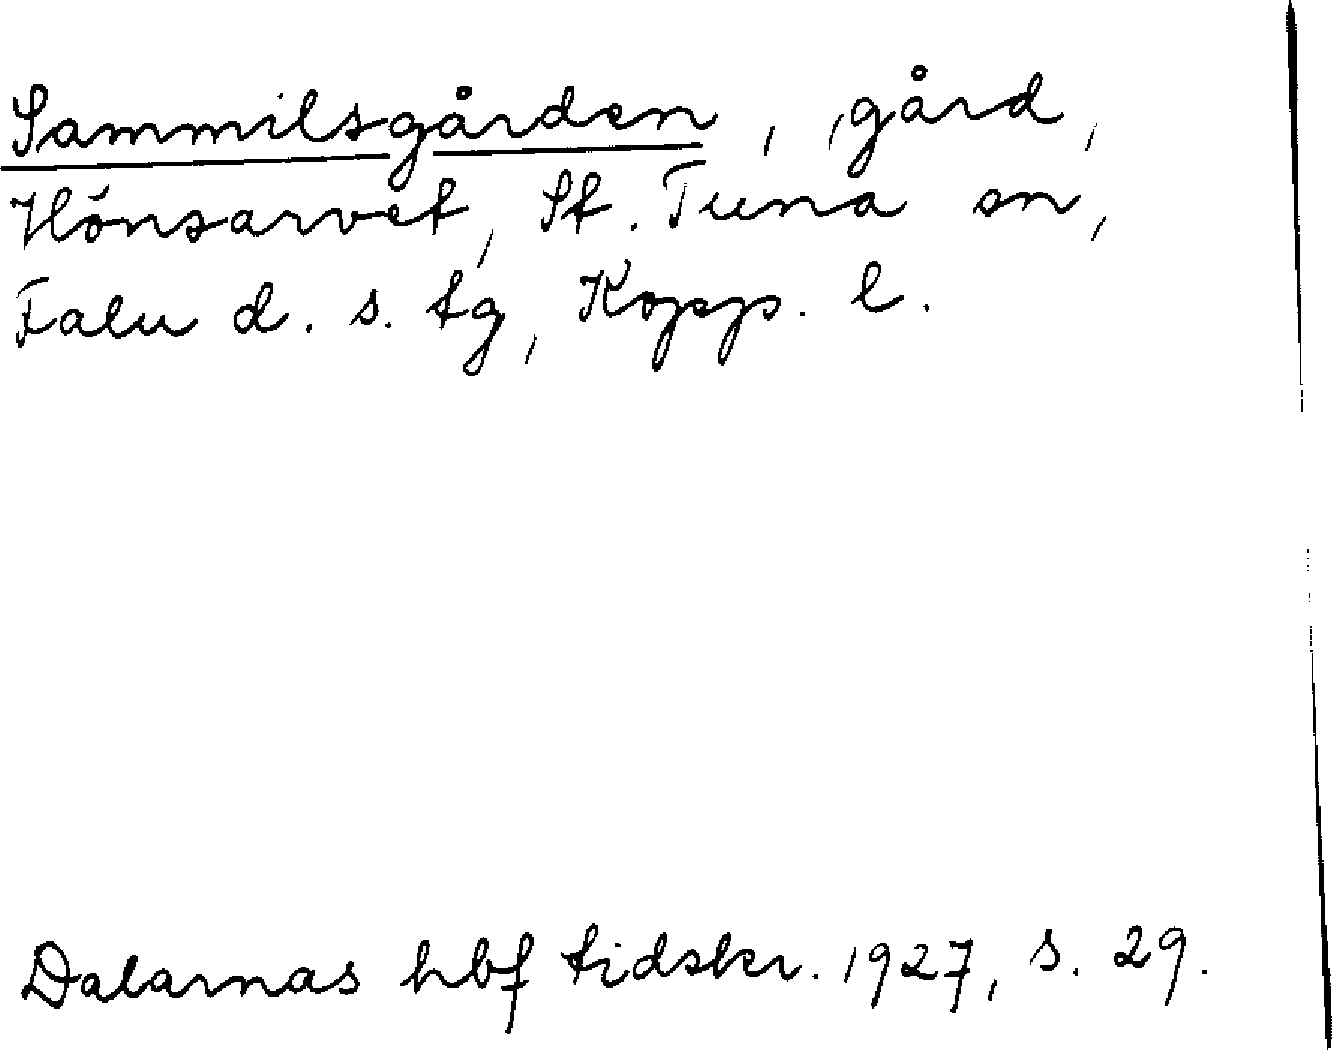 Sammilsgården, gård,
Hönsarvet, St. Tuna sn,
Falu d. s. tg, Kopp. l.
Dalarnas hbf tidskr. 1927, s. 29.